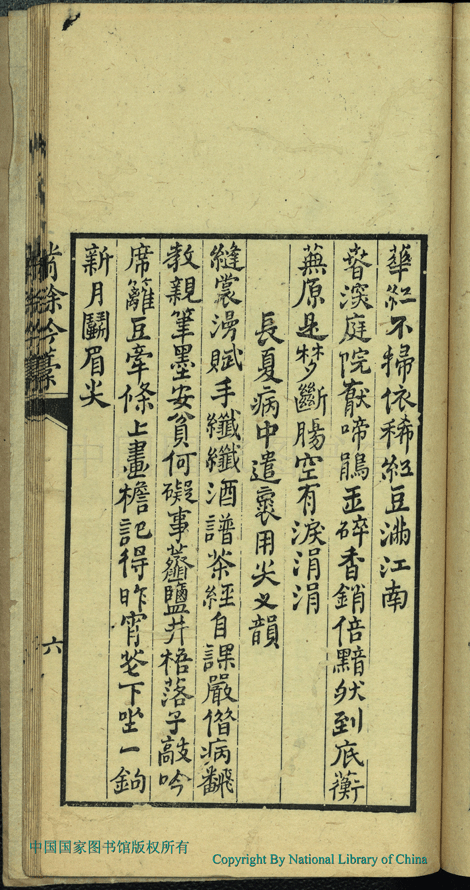 華紅不掃依稀紅豆滿江南
春深庭院厭啼鵑玉碎香銷倍黯然到底蘅
蕪原是夢斷腸空有淚涓涓
長夏病中遣褱用尖叉韻
縫裳漫賦手纖纖酒譜茶經自課嚴偕病翻
教親筆墨安貧何礙事虀鹽井梧落子敲吟
席籬豆牽條上畫檐記得昨宵花下坐一鉤
新月鬭眉尖
六
中国国家图书馆版权所有
Copyright By National Library of China